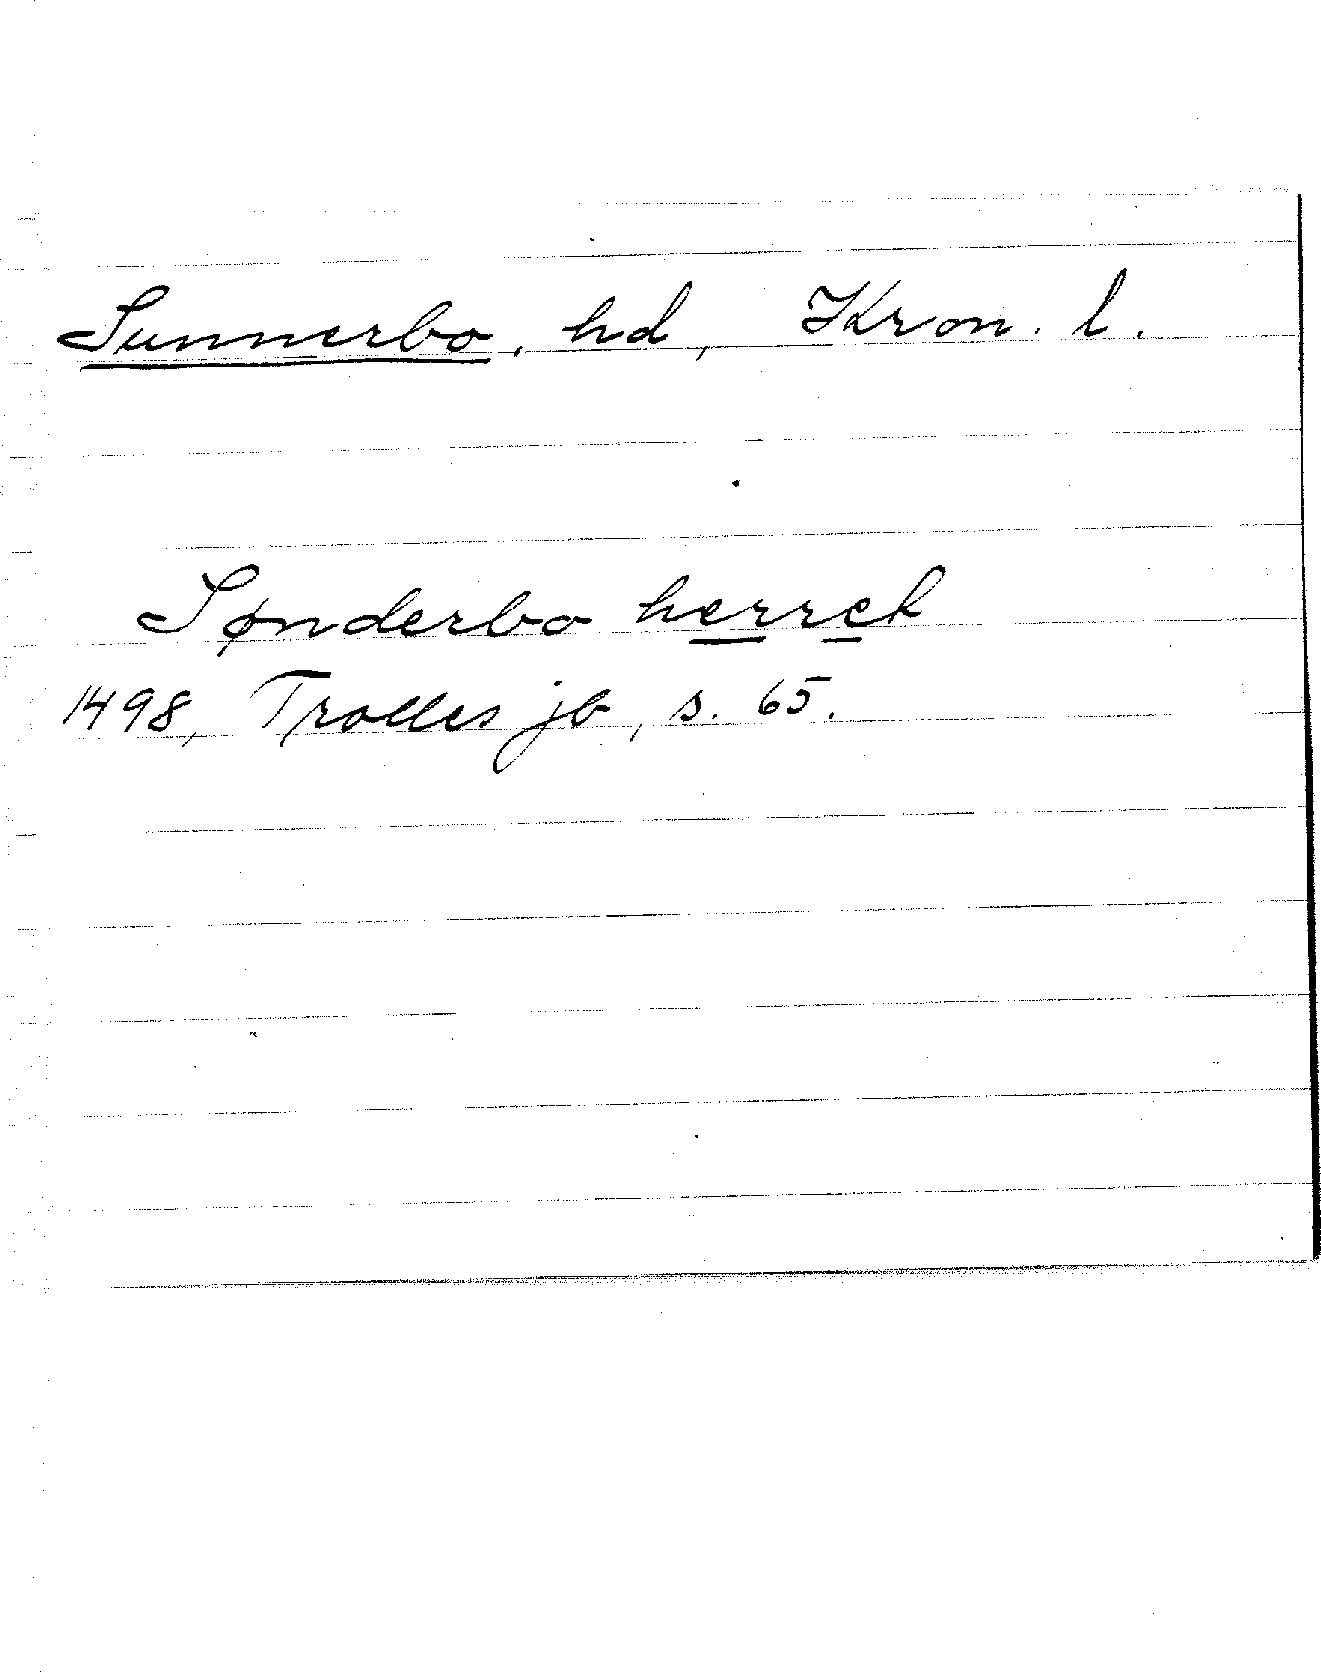 Sunnerbo, hd, Kron. l.
Sønderbo herrek
1498, Trolles jb, s. 65.